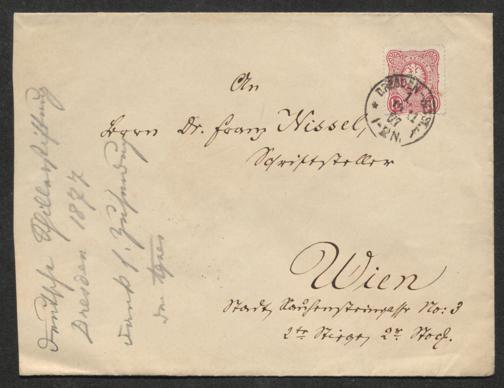 An
Herrn Dr. Franz Nissel,
Schriftsteller
Wien
Stadt, Rauhensteingasse No: 3
2te Stiege, 2r Stock.
DRESDEN
Deutsche Schillerstiftung
Dresden 1877
Zusendung